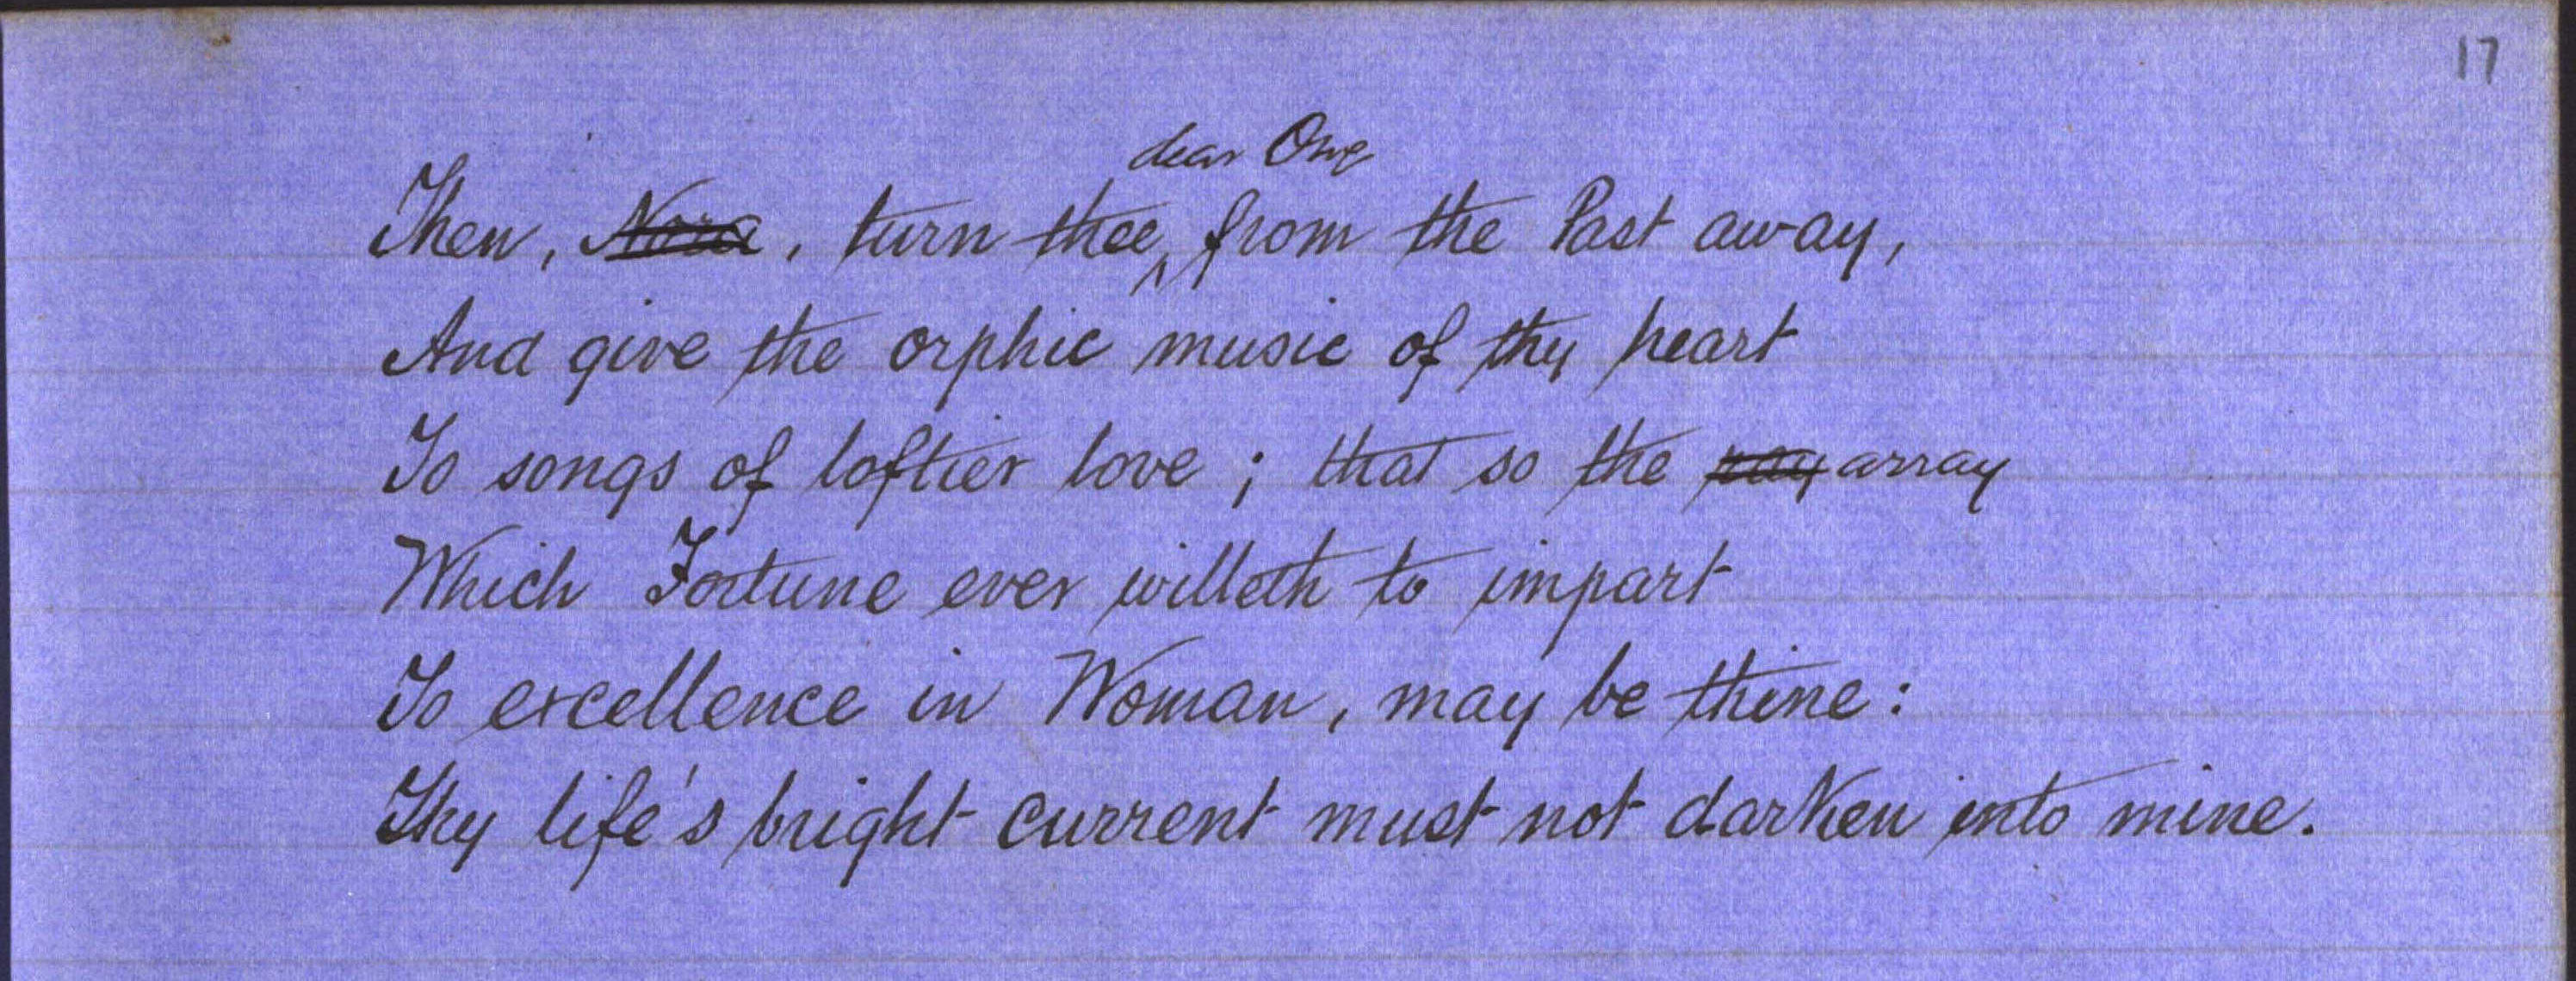 17
dear One
Then, Nora, turn thee, from the Past away,
And give the orphic music of thy heart
To songs of loftier love; that so the ray array
Which Fortune ever willeth to impart
To excellence in Woman, may be thine:
Thy life's bright current must not darken into mine.